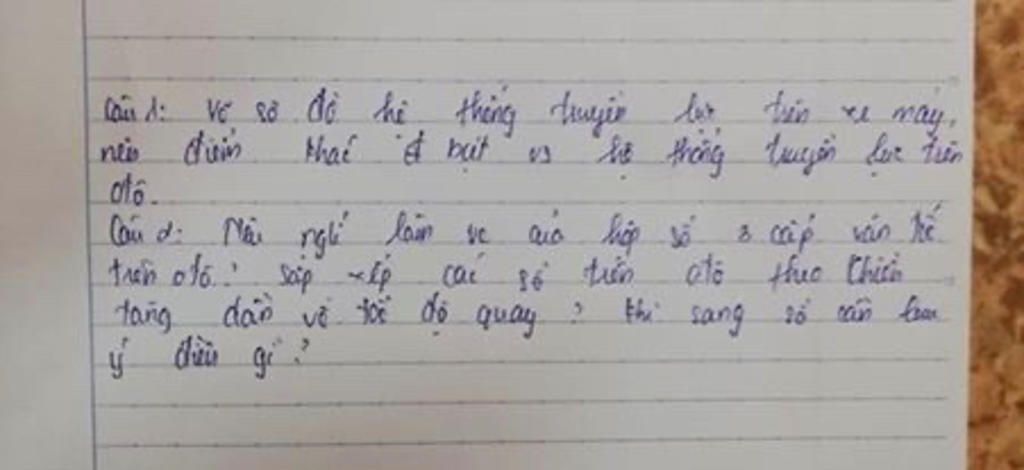 Câu 1: Vẽ sơ đồ hệ thống truyền lực trên xe máy,
nêu điểm khác biệt vs hệ thống truyền lực trên
ôtô.
Câu 2: Nêu ng lí làm vc của hộp số 3 cấp vận tốc
trên ôtô? Sắp xếp các số trên ôtô theo chiều
tăng dần về tốc độ quay? Khi sang số cần lưu
ý điều gì?